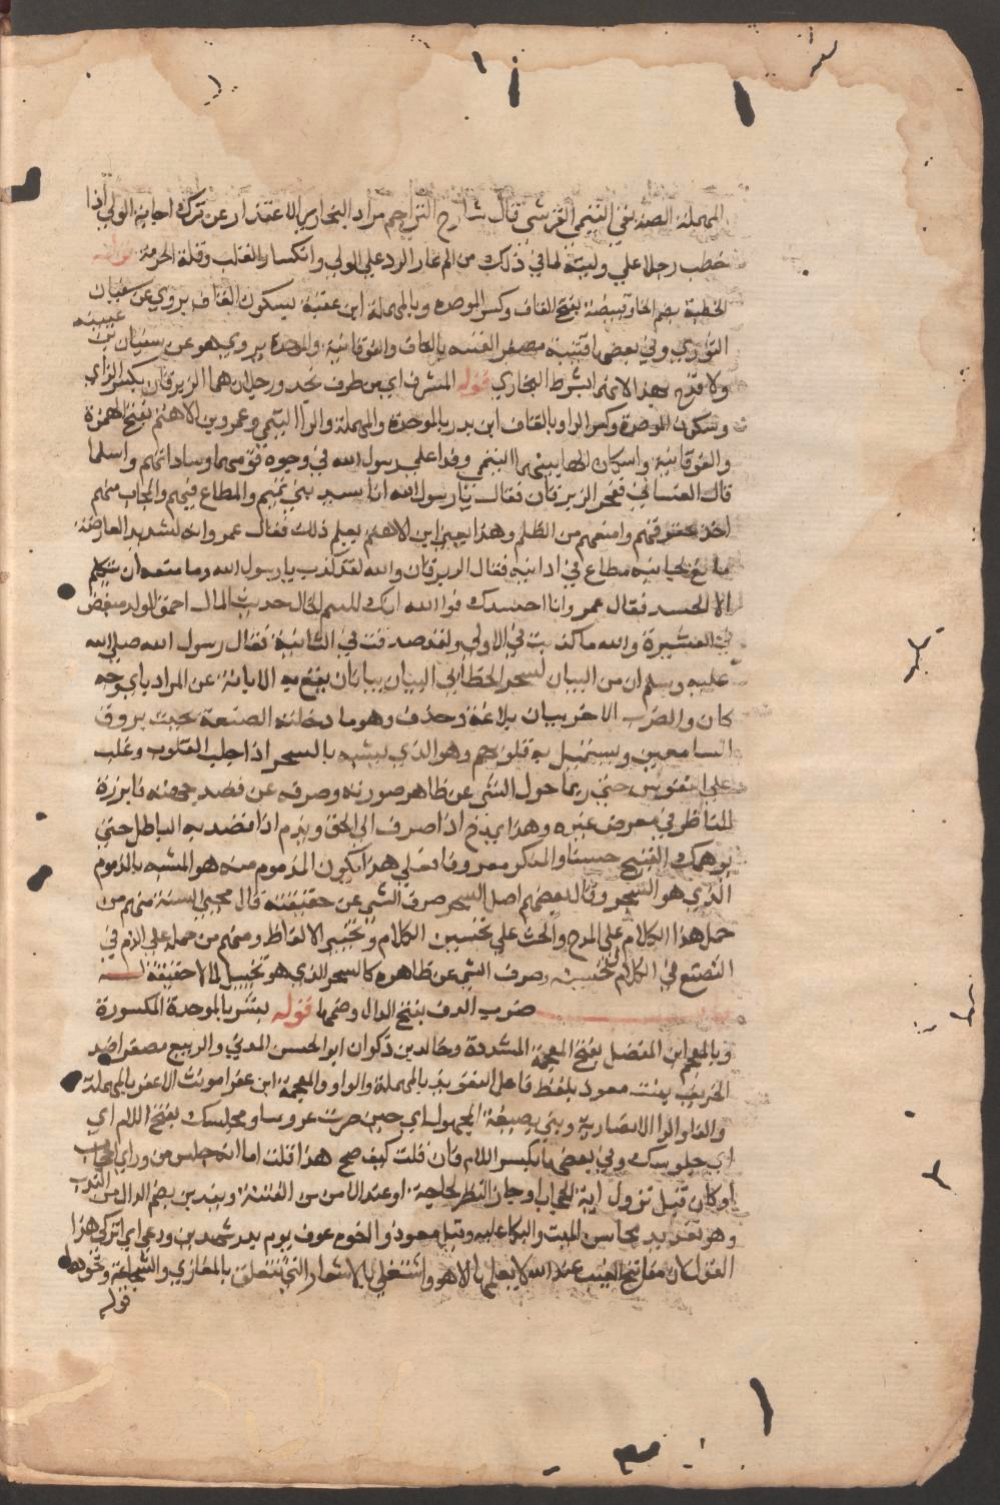 المهملة الصد نفى التيمى القرشى قال شارح التراجم مراد البخارى الاعتذار عن ترك اجابة الولى اذا
خطب رجلا على وليته لما فى ذلك من الم عار الرد على الولى وانكسار القلب وقلة الحرمة قوله
الخطبة بضم الخا وقبيصة بفتح القاف وكسر الموحدة وبالمهملة ابن عقبة بسكون القاف يروى عن سفيان
الثورى وفى بعضها قتيبة مصغر القتبه بالقاف والفوقانية والموحدة يروى هو عن سفيان بن عيينه
ولا قدح بهذا لانهما بشرط البخارى قوله المشرق اى من طرف نجد ورجلان هما الزبرقان بكسر الزاى
وسكون الموحدة وكسر الرا وبالقاف ابن بدر بالموحدة والمهملة والرا التيمى وعمرو بن الاهتم بفتح الهمزة
والفوقانية واسكان الها بينهما التيمى وفدا على رسول الله فى وجوه قومهما وساداتهم واسلما
قال الغسانى ففخر الزبرقان فقال يا رسول الله انا سيد بنى تميم والمطاع فيهم والمجاب منهم
اخذ بحقوقهم وامنعهم من الظلم وهذا يعنى ابن الاهتم يعلم ذلك فقال عمرو انه لشديد العارضة
مانع لجانبه مطاع فى ادانيه فقال الزبرقان والله لقد كذب يا رسول الله وما منعه ان يتكلم
الا الحسد فقال عمرو انا احسدك فوالله انك للئيم الخال حديث المال احمق الولد مبغض
فى العشيرة والله ما كذبت فى الاولى ولقد صدقت فى الثانية فقال رسول الله صلى الله
عليه وسلم ان من البيان لسحرا الخطابى البيان بيانان بيان يقع به الابانة عن المراد باى وجه
كان والضرب الاخر بيان بلاغة وحذق وهو ما دخلته الصنعة بحيث يروق
السامعين ويستميل به قلوبهم وهو الذى يشبه بالسحر اذا جلب القلوب وغلب
على النفوس حتى ربما حول الشى عن ظاهر صورته وصرفه عن قصد جهته فابرزه
للناظر فى معرض غيره وهذا يمدح اذا صرف الى الحق ويذم اذا قصد به الباطل حتى
يوهمك القبيح حسنا والمنكر معروفا فعلى هذا يكون المذموم منه هو المشبه بالمذموم
الذى هو السحر وقال بعضهم اصل السحر صرف الشى عن حقيقته قال محيى السنة منهم من
حمل هذا الكلام على المدح والحث على تحسين الكلام وتحبير الالفاظ ومنهم من حمله على الذم فى
التصنع فى الكلام وصرف الشى عن ظاهره كالسحر الذى هو تخييل لا حقيقة له
ضرب الدف بفتح الدال وضمها قوله بشر بالموحدة المكسورة
وبالمعجمة ابن المفضل بفتح المعجمة المشددة وخالد بن ذكوان ابو الحسن المدنى والربيع مصغر ضد
الخريف بنت معوذ بلفظ فاعل التعويذ بالمهملة والواو والمعجمة ابن عفرا مونث الاعفر بالمهملة
والفا والرا الانصارية وبنى بصيغة المجهول اى حين صرت عروسا ومجلسك بفتح اللام اى
اى جلوسك وفى بعضها بكسر اللام فان قلت كيف صح هذا قلت اما انه جلس من وراى الحجاب
او كان قبل نزول اية الحجاب او جاز النظر لحاجة او عند الامن من الفتنة ويندبن بضم الدال من الندب
وهو تعديد محاسن الميت والبكا عليه وقتل معوذ واخوه عوف يوم بدر شهيدين ودعى اى اتركى هذا
القول فان مفاتيح الغيب عند الله لا يعلمها الا هو واشتغلى بالاشعار التى تتعلق بالمغازى والشجاعة ونحوها
قوله